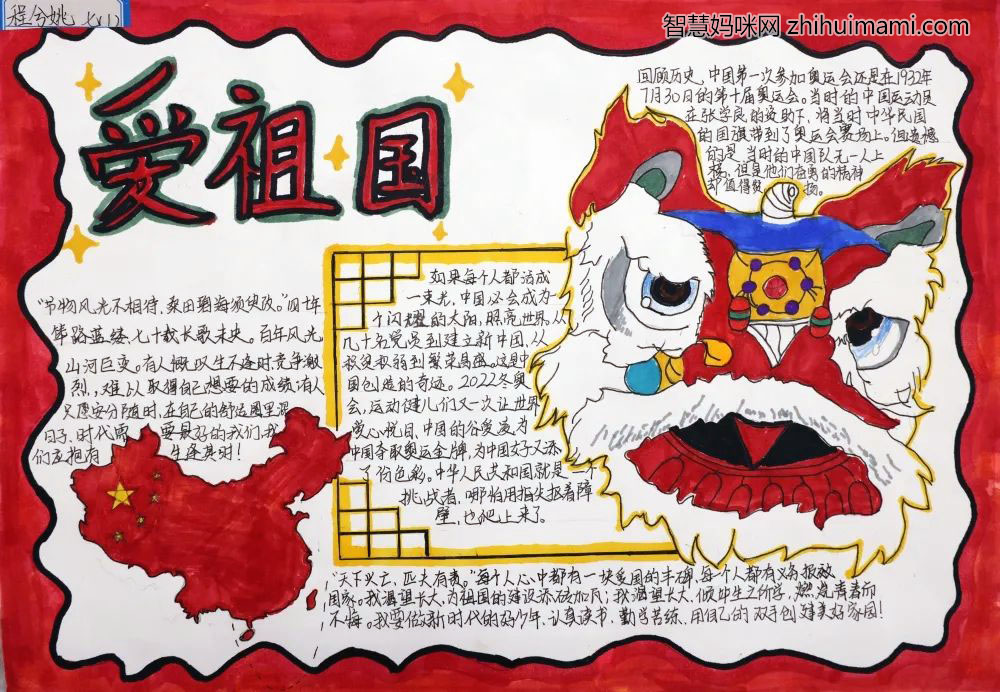 智慧妈咪网 zhihuimami.com
爱祖国
回顾历史，中国第一次参加奥运会还是在1932年
7月30日的第十届奥运会。当时的中国运动员
在张学良的资助下，将当时中华民国
的国旗带到了奥运会赛场上。但遗憾
的是，当时的中国队无一人上
榜，但是他们在勇的精神
却值得发扬。
"节物风光不相待，桑田碧海须臾改。"四十年
筚路蓝缕，七十载长歌未央。百年风光
山河巨变。有人慨叹生不逢时，竞争激
烈，难以取得自己想要的成绩；有人
只愿安分随时，在自己的舒适圈里混
日子，时代需要最好的我们，我
们正拥有 生逢其时！
如果每个人都活成
一束光，中国必会成为
一个闪耀的太阳，照亮世界。从
几十名党员到建立新中国，从
积贫积弱到繁荣昌盛。这是中
国创造的奇迹。2022冬奥
会，运动健儿们又一次让世界
赏心悦目，中国的谷爱凌为
中国夺取奥运金牌，为中国女子又添
了份色彩。中华人民共和国就是一个
挑战者，哪怕用指尖抠着障
壁，也爬上来了。
"天下兴亡，匹夫有责。"每个人心中都有一块爱国的丰碑，每个人都有义务报效
国家。我渴望长大，为祖国的建设添砖加瓦；我渴望长大，倾听生之所学，燃烧青春而
不悔。我要做新时代的好少年，认真读书，勤学苦练，用自己的双手创建美好家园！